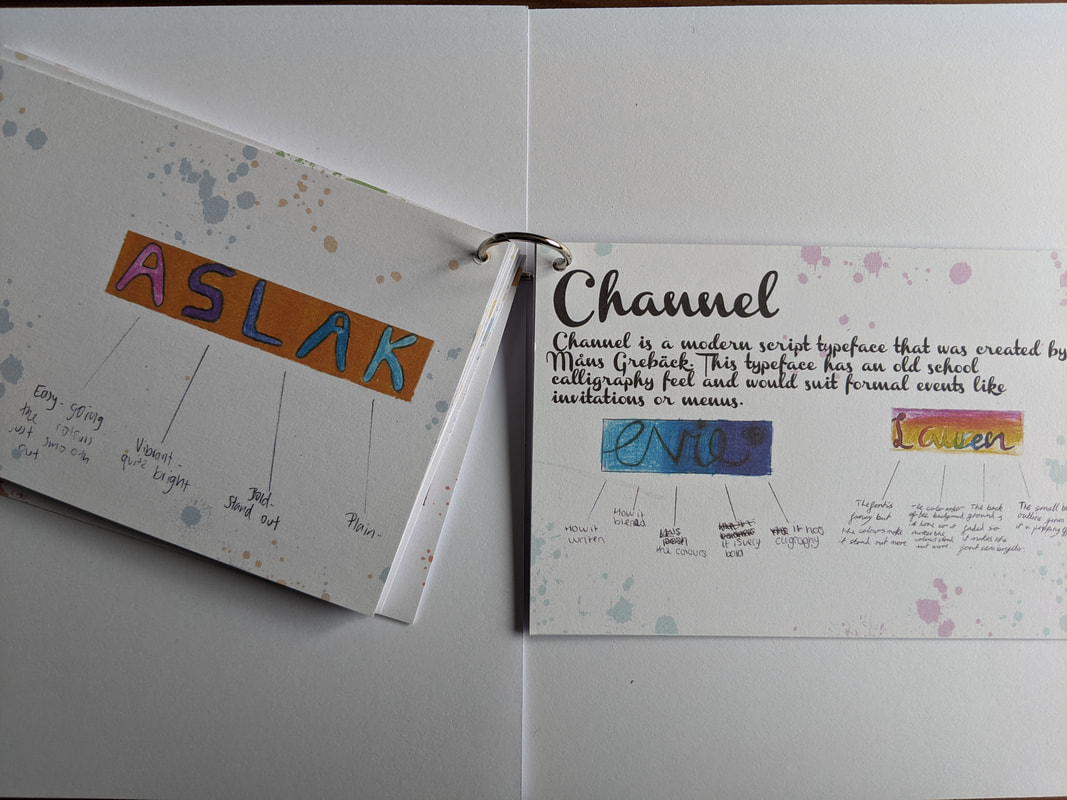 ASLAK
Easy-going
the colours
just smooth
out
Vibrant-
quite bright
Bold-
Stand out
Plain-
Channel
Channel is a modern script typeface that was created by
Måns Grebäck. This typeface has an old school
calligraphy feel and would suit formal events like
invitations or menus.
evie
Lauren
How it
writen
How it
blened
the colours
it is very
bold
it has
The font is
fancy but
the colours make
it stand out more
The back
ground is
faded so
it makes the
font seem brighter
The small b
outline gives